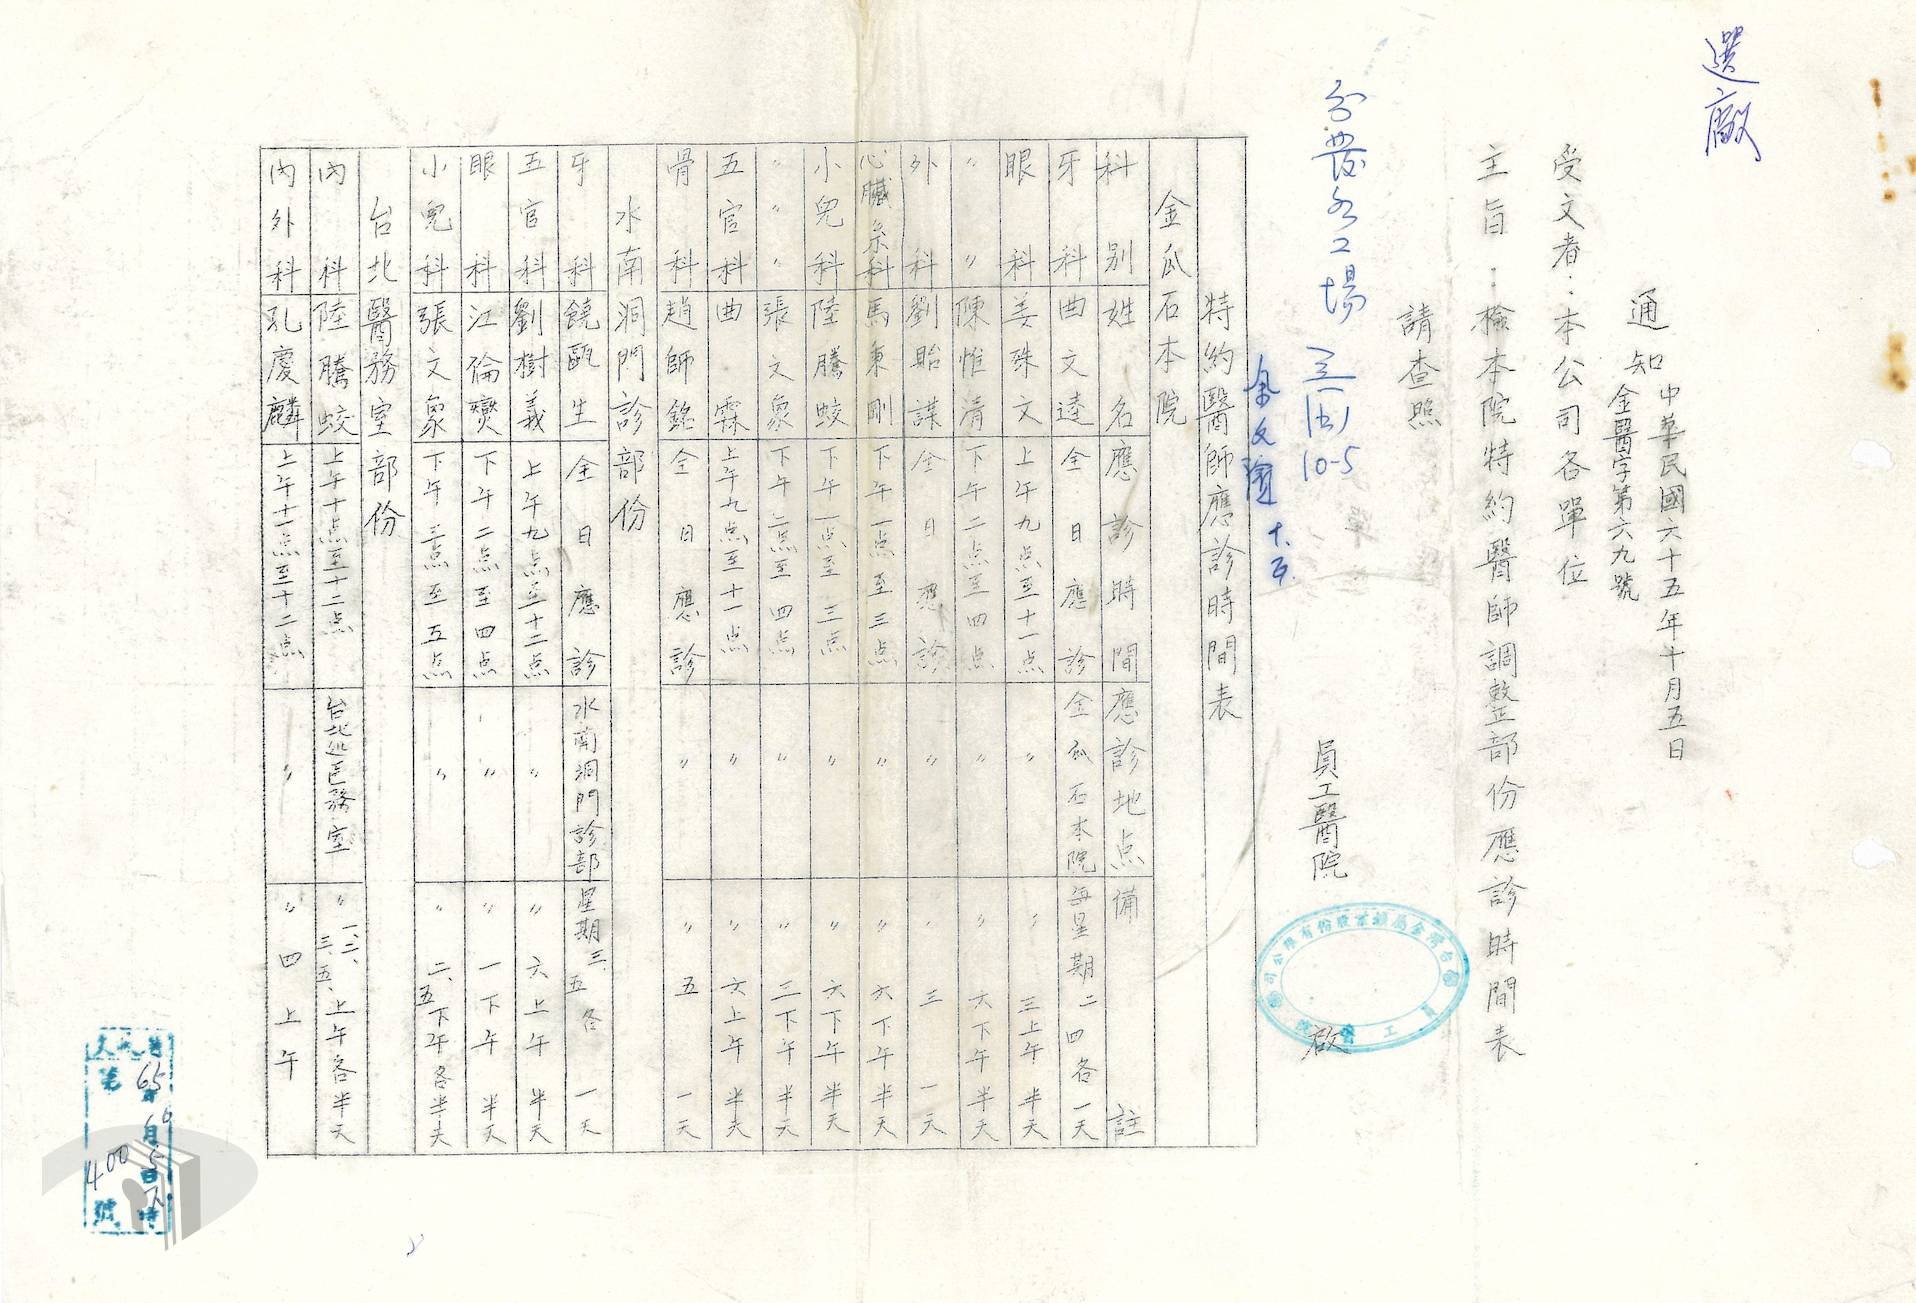 選廠
通知
中華民國六十五年十月五日
金醫字第六九號
受文者：本公司各單位
主旨：檢本院特約醫師調整部份應診時間表
請查照
員工醫院 啟
台灣金屬鑛業股份有限公司
員工醫院
10-5
十.五.
特約醫師應診時間表
金瓜石本院
科別 姓名 應診時間 應診地点 備註
牙科 曲文達 全日應診 金瓜石本院 每星期二四各一天
眼科 姜珠文 上午九点至十一点 〃 〃三上午半天
〃〃 陳惟清 下午二点至四点 〃 〃六下午半天
外科 劉貽謀 全日應診 〃 〃三一天
心臟系科 馬秉剛 下午一点至三点 〃 〃六下午半天
小兒科 陸騰蛟 下午一点至三点 〃 〃六下午半天
〃〃 張文象 下午二点至四点 〃 〃三下午半天
五官科 曲霖 上午九点至十一点 〃 〃六上午半天
骨科 趙師銘 全日應診 〃 〃五一天
水南洞門診部份
牙科 饒甌生 全日應診 水南洞門診部 星期三、五各一天
五官科 劉樹義 上午九点至十二点 〃 〃六上午半天
眼科 江倫爕 下午二点至四点 〃 〃一下午半天
小兒科 張文象 下午三点至五点 〃 〃二、五下午各半天
台北醫務室部份
內科 陸騰蛟 上午十点至十二点 台北巡醫務室 〃一、二、三、五、上午各半天
內外科 孔慶麟 上午十一点至十二点 〃 〃四上午
65年10月5日
第400號